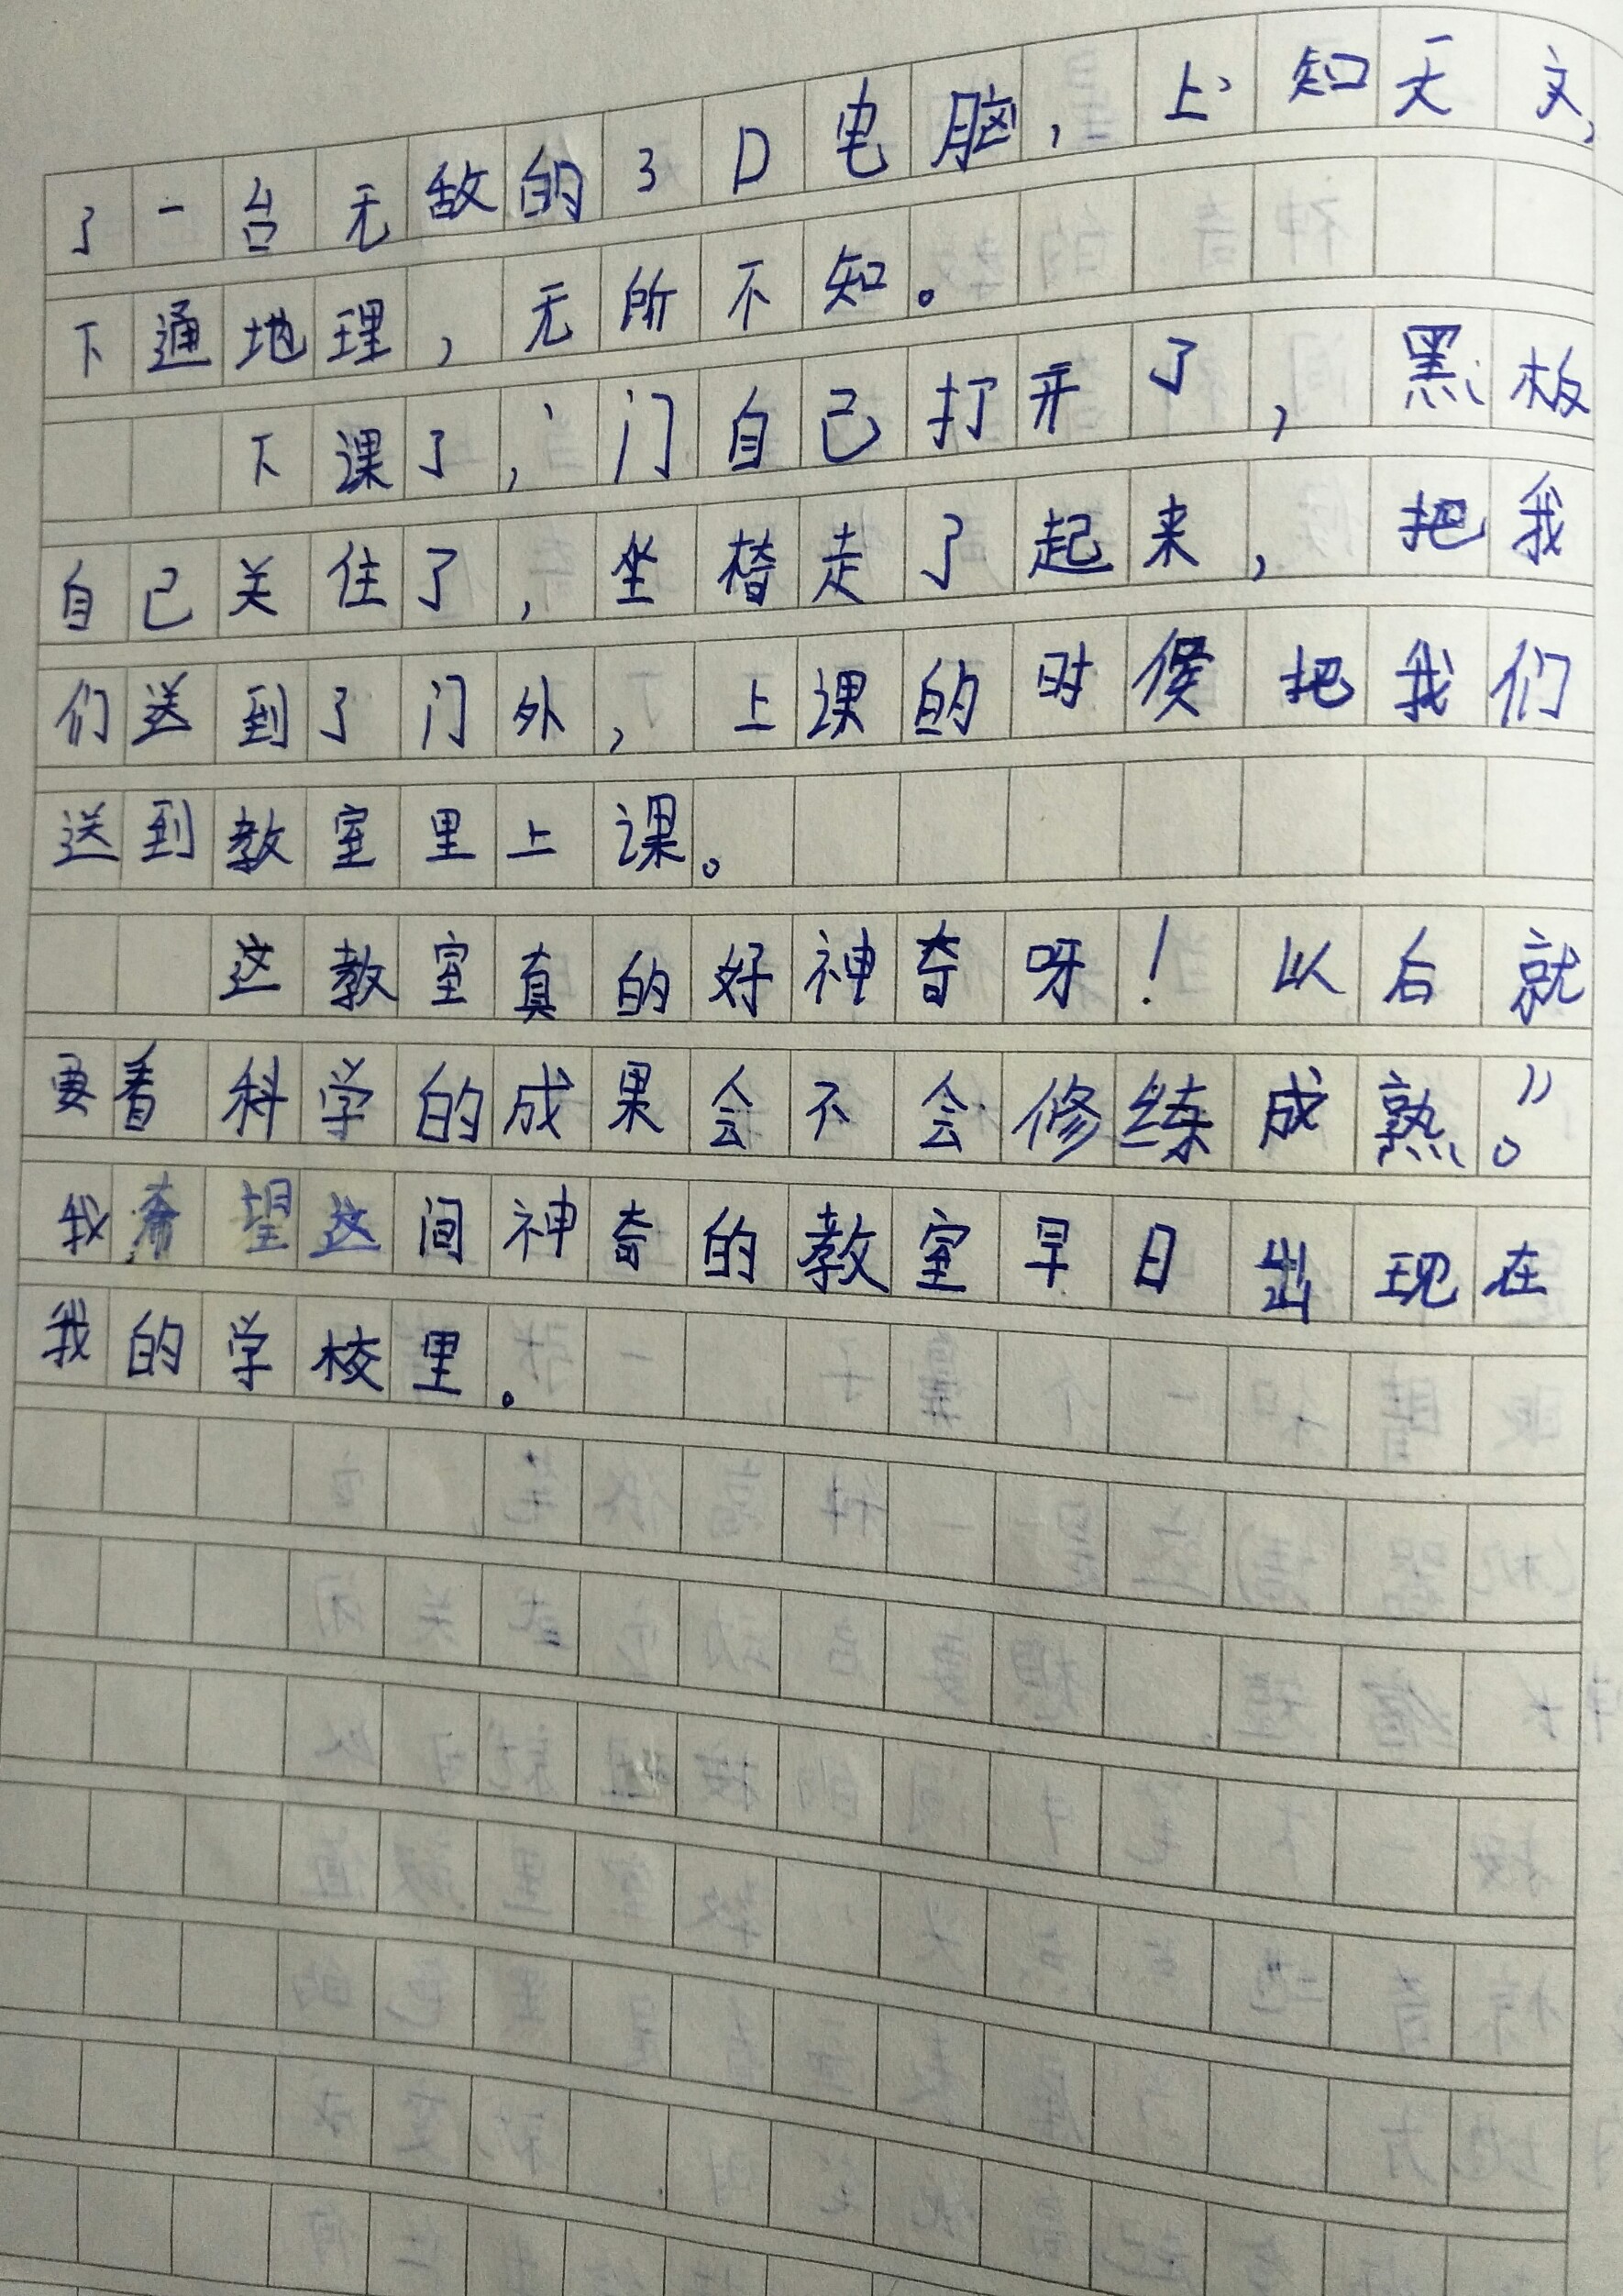 了一台无敌的3D电脑，上知天文，
下通地理，无所不知。
下课了，门自己打开了，黑板
自己关住了，坐椅走了起来，把我
们送到了门外，上课的时候把我们
送到教室里上课。
这教室真的好神奇呀！以后就
要看科学的成果会不会修练成熟。”
我希望这间神奇的教室早日出现在
我的学校里。